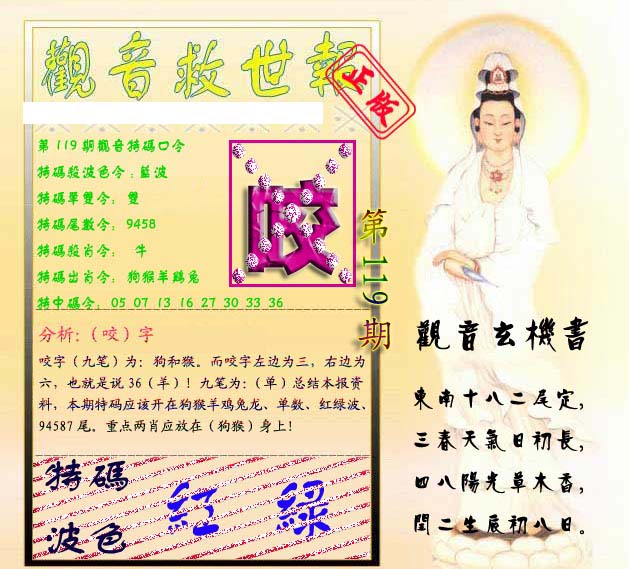 觀音救世報
正版
第119期觀音特碼口令
特碼殺波色令:藍波
特碼單雙令: 雙
特碼尾數令: 9458
特碼殺肖令: 牛
特碼出肖令: 狗猴羊鷄兔
特中碼令: 05 07 13 16 27 30 33 36
咬
第119期
分析:（咬）字
咬字（九笔）为：狗和猴。而咬字左边为三，右边为
六，也就是说36（羊）！九笔为：（单）总结本报资
料，本期特码应该开在狗猴羊鸡兔龙、单数、红绿波、
94587尾。重点两肖应放在（狗猴）身上！
特碼
波色
紅 綠
觀音玄機書
東南十八二尾定，
三春天氣日初長，
四八陽光草木香，
閏二生辰初八日。